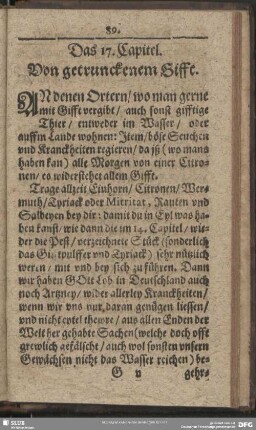 89.
Das 17. Capitel.
Von getrunckenem Gifft.
AN denen Ortern/ wo man gerne
mit Gifft vergibt/ auch sonst gifftige
Thier/ entweder im Wasser/ oder
auffm Lande wohnen: Item/ böse Seuchen
und Kranckheiten regieren/ da iß (wo mans
haben kan) alle Morgen von einer Citro-
nen/ es widerstehet allem Gifft.
Trage allzeit Einhorn/ Citronen/ Wer-
muth/ Tyriack oder Mitritat, Rauten vnd
Salbeyen bey dir: damit du in Eyl was ha-
ben kanst/ wie dann die im 14. Capitel/ wi-
der die Pest/ verzeichnete Stück (sonderlich
das Gifftpulffer und Tyriack) sehr nützlich
weren/ mit und bey sich zu führen. Dann
wir haben GOtt Lob in Deutschland auch
noch Artzney/ wider allerley Kranckheiten/
wenn wir uns nur daran genügen liessen/
und nicht eytel thewre/ aus allen Enden der
Welt her gehabte Sachen (welche doch offt
grewlich gefälscht/ auch wol sonsten unsern
Gewächsen nicht das Wasser reichen) be-
G v
gehrs
SLUB
DFG